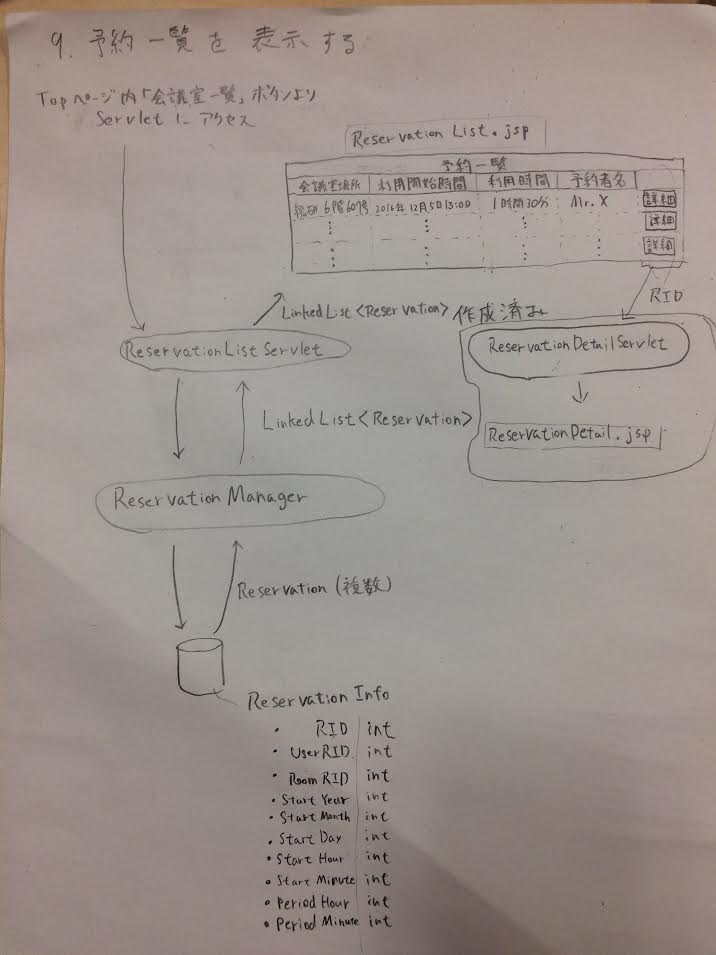 9. 予約一覧を表示する
Topページ内「会議室一覧」ボタンより
Servletにアクセス
Reservation List.jsp
予約一覧
会議室場所 利用開始時間 利用時間 予約者名
総研6階607号 2016年12月5日13:00 1時間30分 Mr. X 詳細
詳細
詳細
RID
LinkedList<Reservation>
作成済み
ReservationListServlet
ReservationDetailServlet
LinkedList<Reservation>
ReservationDetail.jsp
Reservation Manager
Reservation (複数)
Reservation Info
・ RID int
・ UserRID int
・ Room RID int
・ Start Year int
・ Start Month int
・ Start Day int
・ Start Hour int
・ Start Minute int
・ Period Hour int
・ Period Minute int